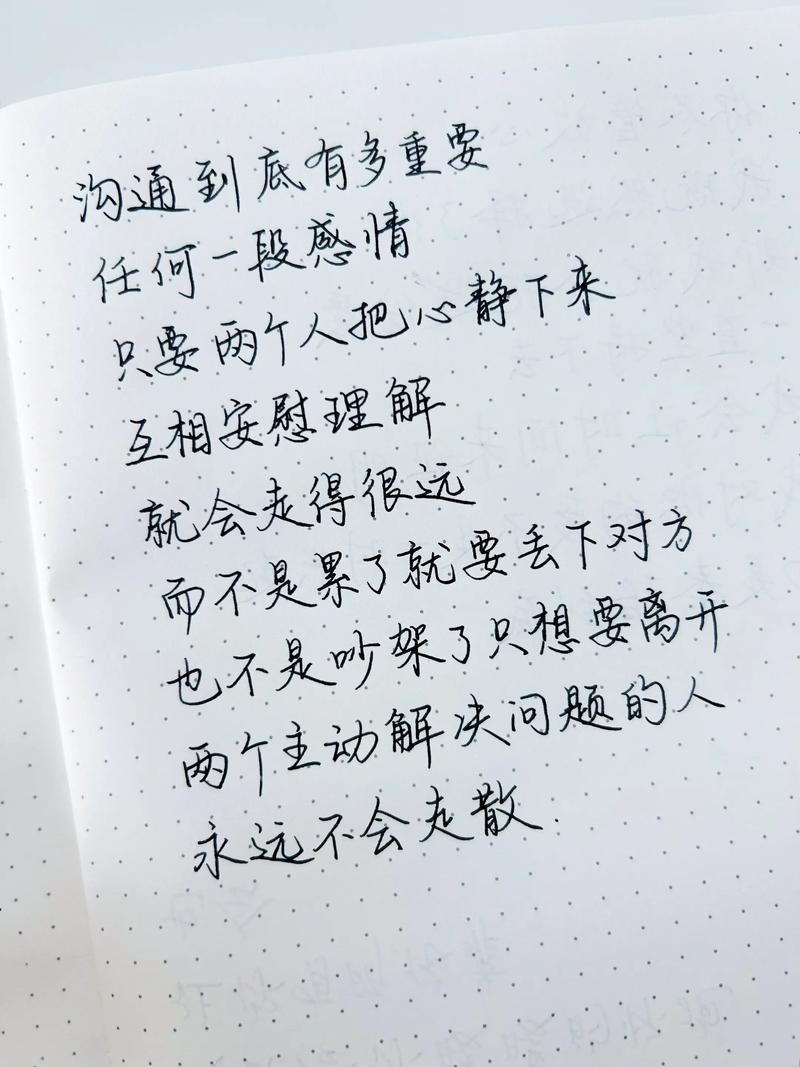 沟通到底有多重要
任何一段感情
只要两个人把心静下来
互相安慰理解
就会走得很远
而不是累了就要丢下对方
也不是吵架了只想要离开
两个主动解决问题的人
永远不会走散.